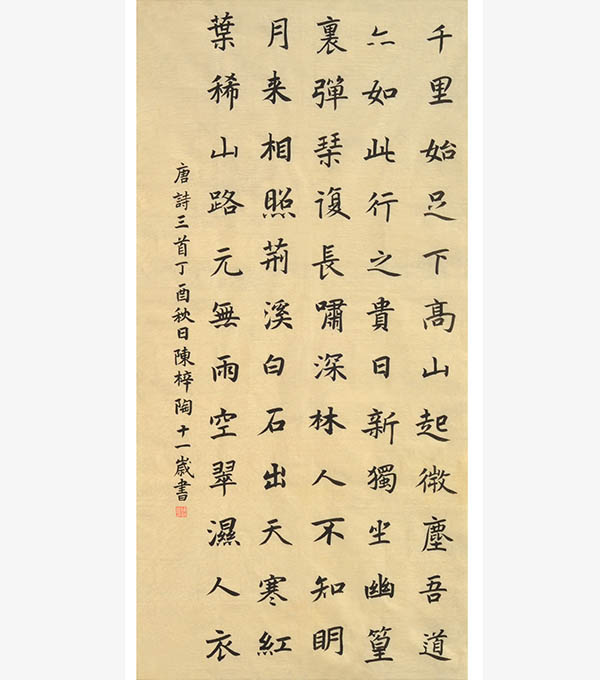 千里始足下高山起微塵吾道
亦如此行之貴日新獨坐幽篁
裏彈琹復長嘯深林人不知明
月来相照荊溪白石出天寒紅
葉稀山路元無雨空翠濕人衣
唐詩三首丁酉秋日陳梓陶十一歲書